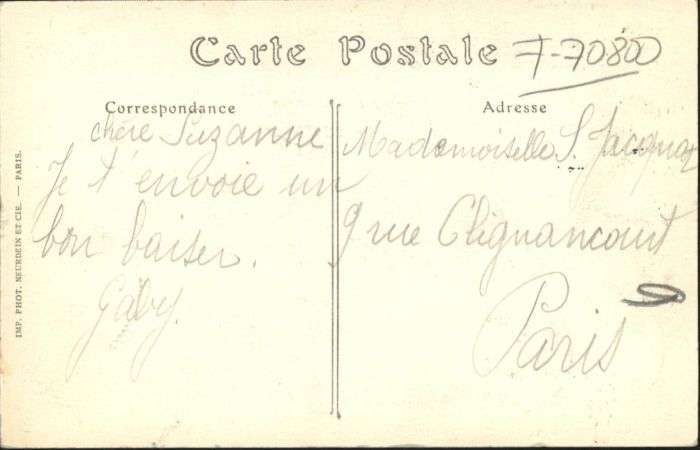 Carte Postale
F-70800
Correspondance
Adresse
chère Suzanne
Je t'envoie un
bon baiser.
Gaby
Mademoiselle S. Jacquot
9 rue Clignancourt
Paris
IMP. PHOT. NEURDEIN ET CIE. — PARIS.